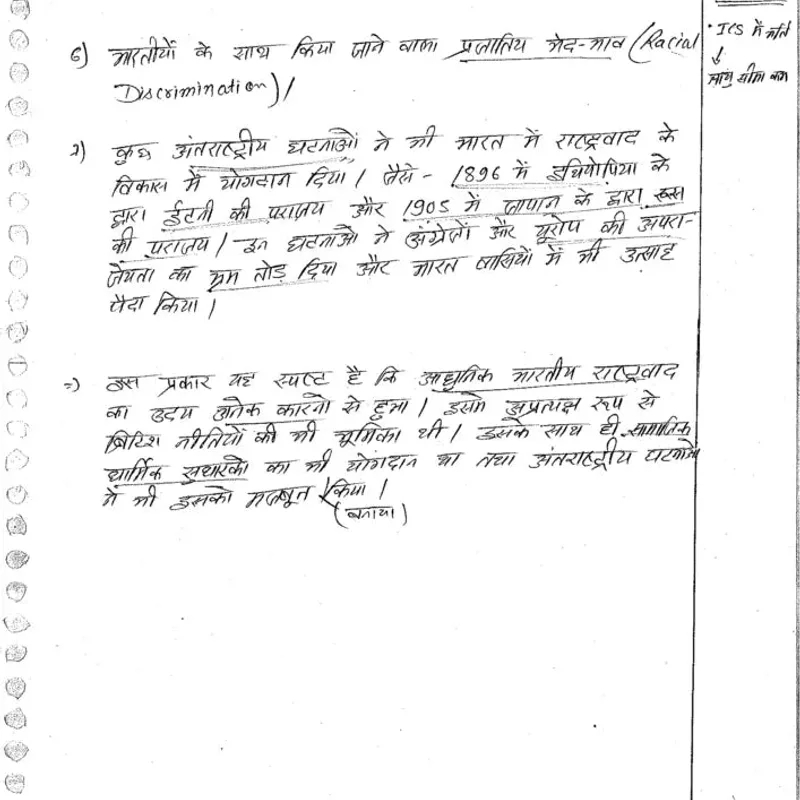 6) भारतीयों के साथ किया जाने वाला प्रजातिय भेद-भाव (Racial
Discrimination)।
7) कुछ अंतराष्ट्रीय घटनाओं ने भी भारत में राष्ट्रवाद के
विकास में योगदान दिया। जैसे - 1896 में इथियोपिया के
द्वारा ईटली की पराजय और 1905 में जापान के द्वारा रूस
की पराजय। इन घटनाओं ने अंग्रेजों और यूरोप की अपरा-
जेयता का भ्रम तोड़ दिया और भारत वासियों में भी उत्साह
पैदा किया।
=) इस प्रकार यह स्पष्ट है कि आधुनिक भारतीय राष्ट्रवाद
का उदय अनेक कारणो से हुआ। इसमे अप्रत्यक्ष रूप से
ब्रिटिश नीतियों की भी भूमिका थी। इसके साथ ही सामाजिक
धार्मिक सुधारको का भी योगदान था तथा अंतराष्ट्रीय घटनाओं
ने भी इसको मजबूत किया।
(बनाया)
• ICS में भर्ति
↓
आयु सीमा कम